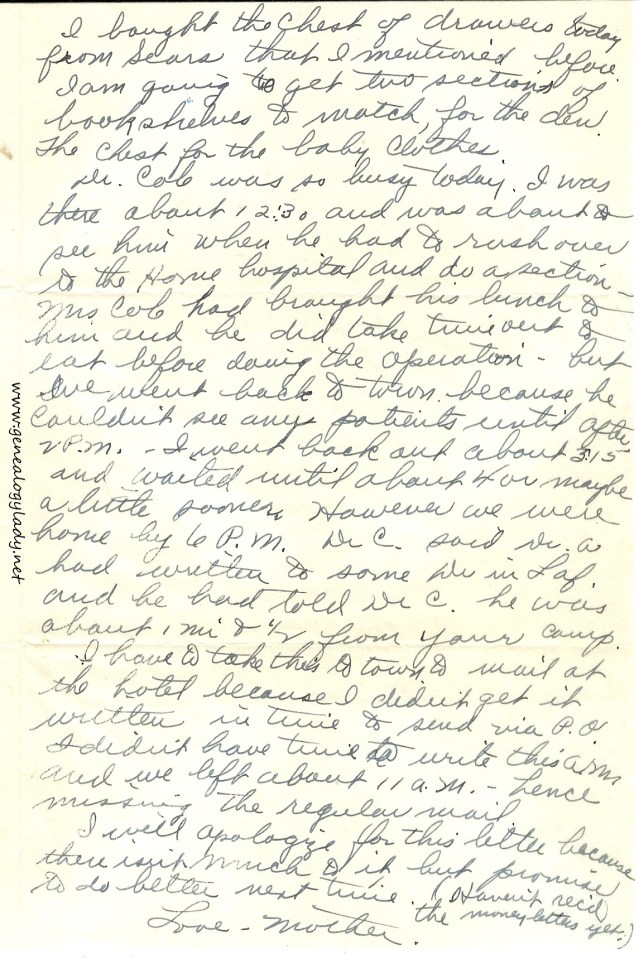 I bought the chest of drawers today
from Sears that I mentioned before.
I am going to get two sections of
bookshelves to match, for the den.
The chest for the baby clothes
Dr. Cole was so busy today. I was
there about 12:30 and was about to
see him when he had to rush over
to the Home hospital and do a section –
Mrs Cole had brought his lunch to
him and he did take time out to
eat before doing the operation – but
we went back to town because he
couldn't see any patients until after
2 P.M. – I went back out about 3:15
and waited until about 4 or maybe
a little sooner. However we were
home by 6 P.M. Dr C. said Dr. A
had written to some Dr in Laf.
and he had told Dr C. he was
about 1 mi & 1/2 from your camp.
I have to take this to town to mail at
the hotel because I didn't get it
written in time to send via P.O
I didn't have time to write this a.m
and we left about 11 a.m. – hence
missing the regular mail
I will apologize for this letter because
there isn't much to it but promise
to do better next time. (Haven't rec'd
the money letters yet.)
Love – Mother.
www.genealogylady.net